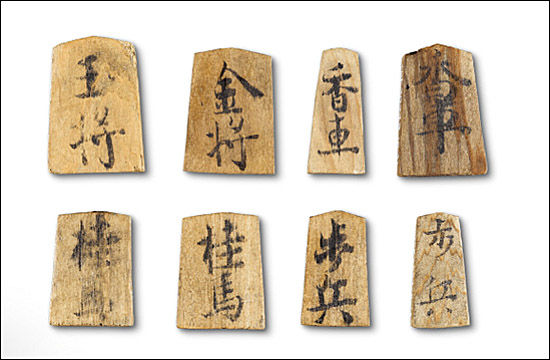 玉将
金将
香車
桂馬
桂馬
歩兵
歩兵